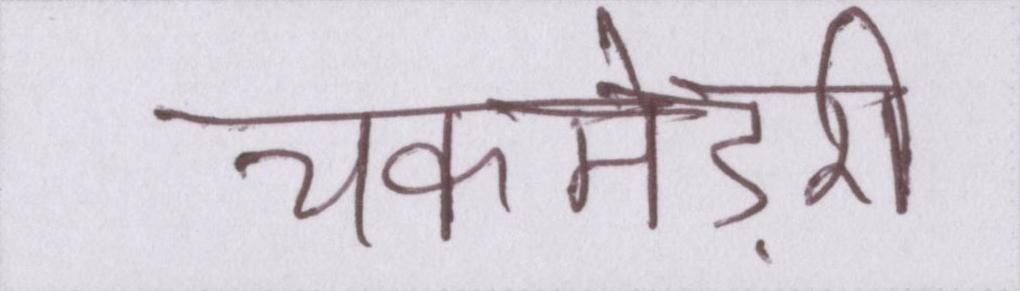 चकमेड़री